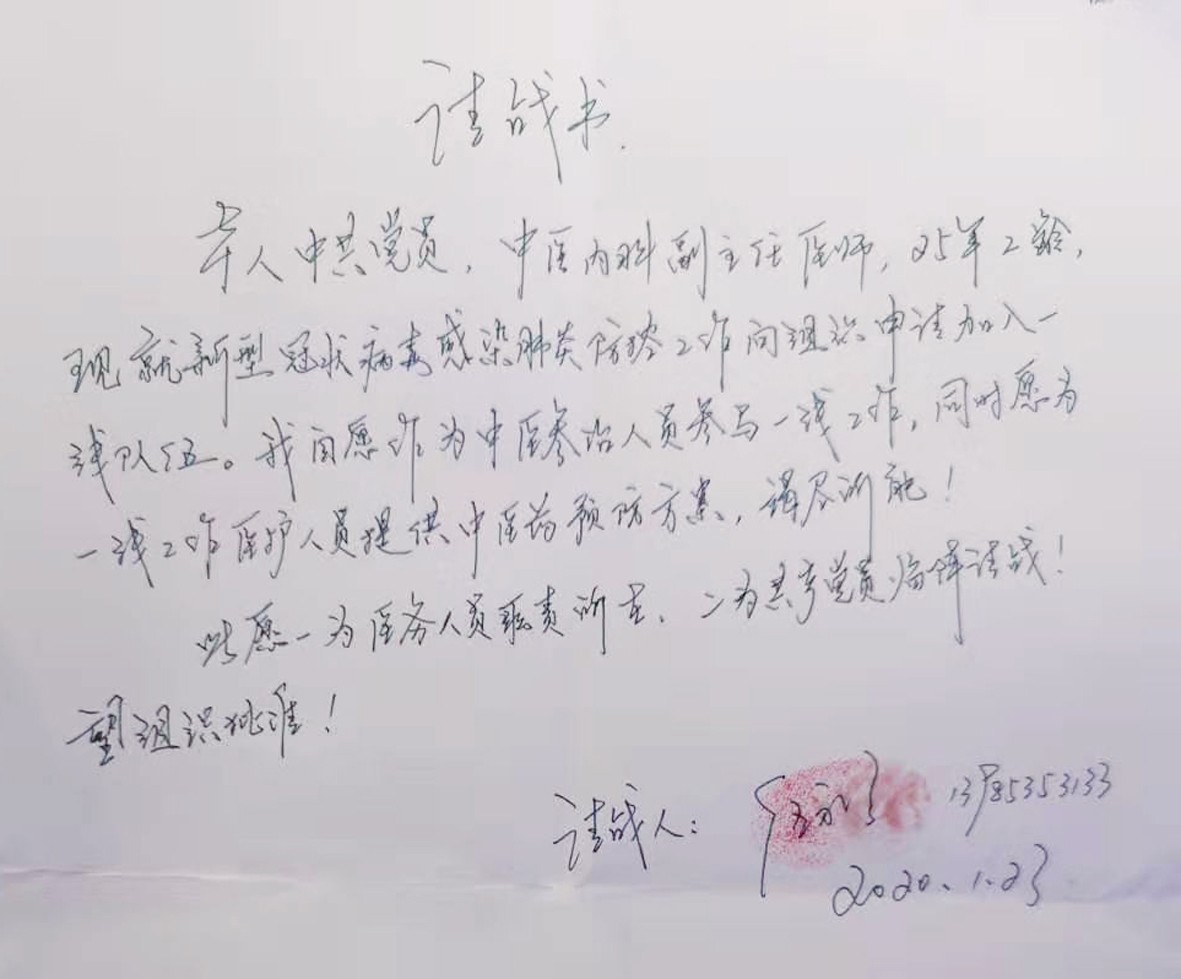 请战书.
本人中共党员，中医内科副主任医师，25年工龄，
现就新型冠状病毒感染肺炎防控工作向组织申请加入一
线队伍。我自愿作为中医参治人员参与一线工作，同时愿为
一线工作医护人员提供中医药预防方案，竭尽所能！
此愿一为医务人员职责所在、二为共产党员临阵请战！
望组织批准！
请战人：
2020.1.23